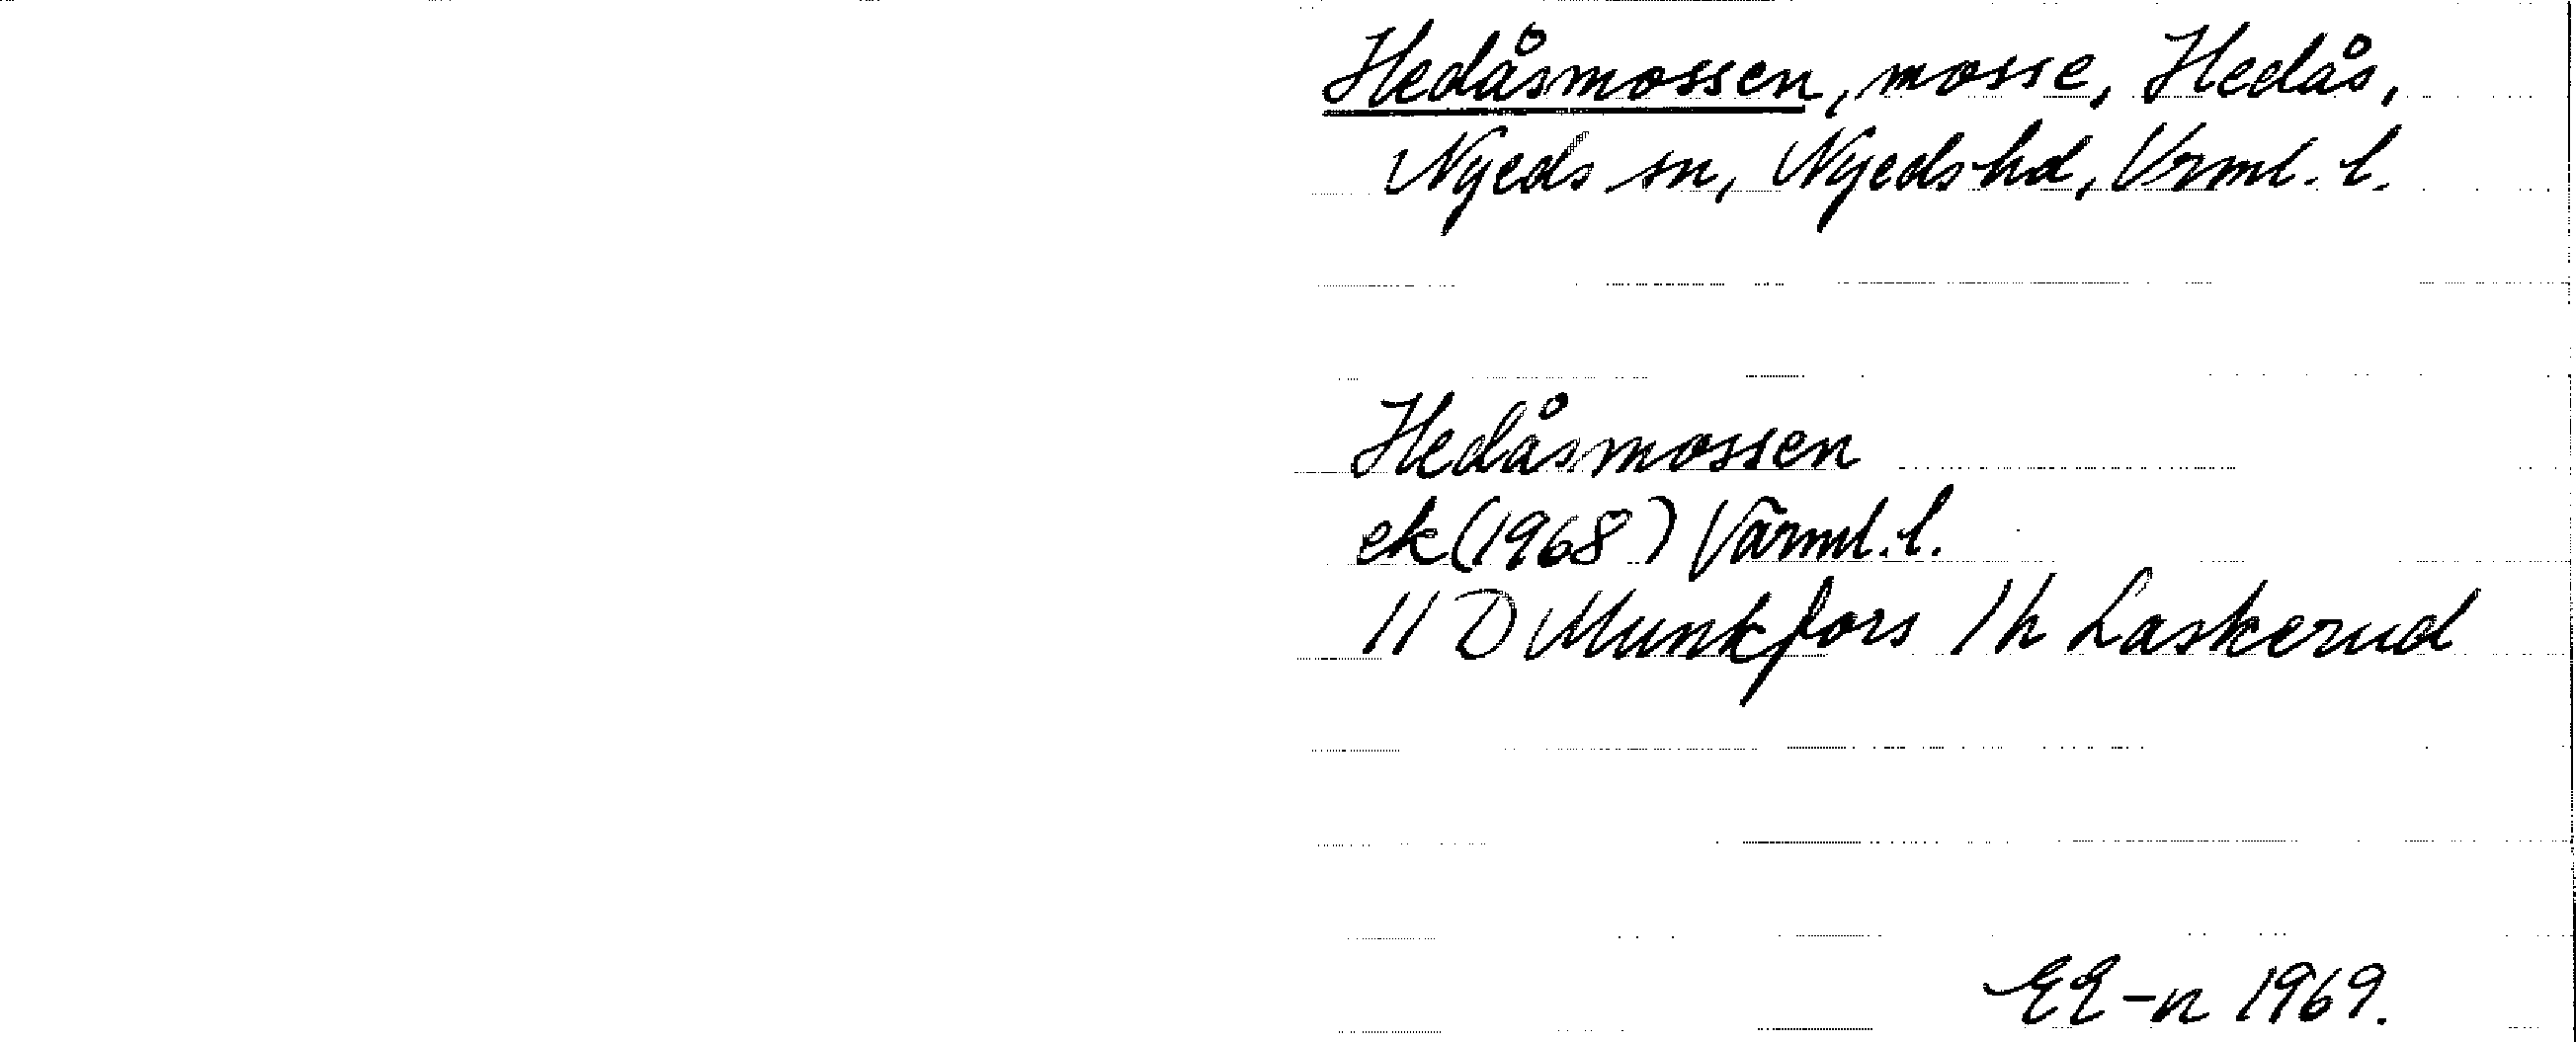 Hedåsmossen, mosse, Hedås,
Nyeds sn, Nyeds hd, Vrml. l.
Hedåsmossen
ek (1968) Värml. l.
11 D Munkfors 1 h Laskerud
EE-n 1969.